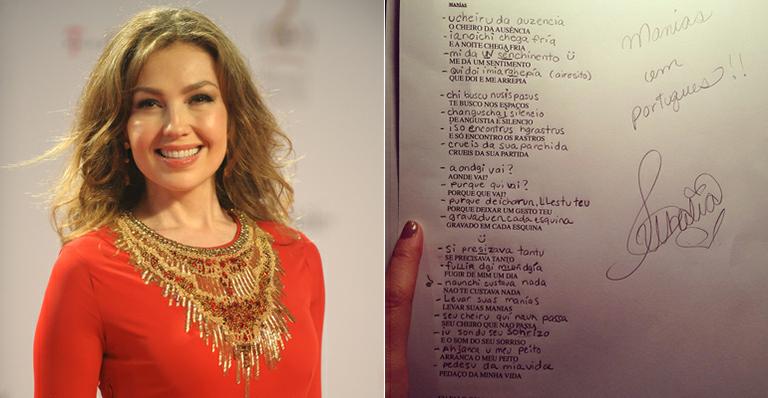 MANIAS
- ucheiru da auzencia
O CHEIRO DA AUSÊNCIA
- ianoichi chega fria
E A NOITE CHEGA FRIA
- mi da UN senchinento
ME DÁ UM SENTIMENTO
- qui doi imiarghepia (airesito)
QUE DOI E ME ARREPIA
- chi buscu nusispasus
TE BUSCO NOS ESPAÇOS
- changuschaj silencio
DE ANGUSTIA E SILENCIO
- iso encontrus hgrastrus
E SÓ ENCONTRO OS RASTROS
- crueis da sua parchida
CRUEIS DA SUA PARTIDA
- aondgi vai?
AONDE VAI?
- purque qui vai?
PORQUE QUE VAI?
- purque deicharun, LLestu teu
PORQUE DEIXAR UM GESTO TEU
- gravaduencada esquina
GRAVADO EM CADA ESQUINA
- si presizava tantu
SE PRECISAVA TANTO
- fullir dgi miundgia
FUGIR DE MIM UM DIA
- naunchi custava nada
NAO TE CUSTAVA NADA
- Levar suas manias
LEVAR SUAS MANIAS
- seu cheiru qui naun passa
SEU CHEIRO QUE NAO PASSA
- iu sondu seu sohrizo
E O SOM DO SEU SORRISO
- Ahjanca u meu peito
ARRANCA O MEU PEITO
- pedesu da mia vida
PEDAÇO DA MINHA VIDA
Manias
em
portugues!!
Thalia